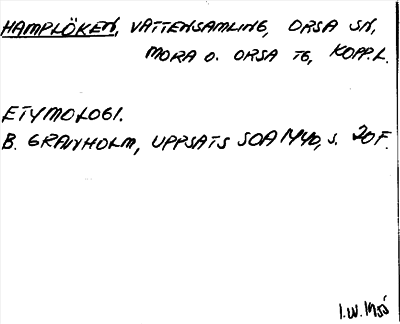 HAMPLÖKEN, VATTENSAMLING, ORSA SN,
MORA O. ORSA TG, KOPP.L.
ETYMOLOGI.
B. GRANHOLM, UPPSATS SOA 1940, S. 20 F.
I.W. 1955